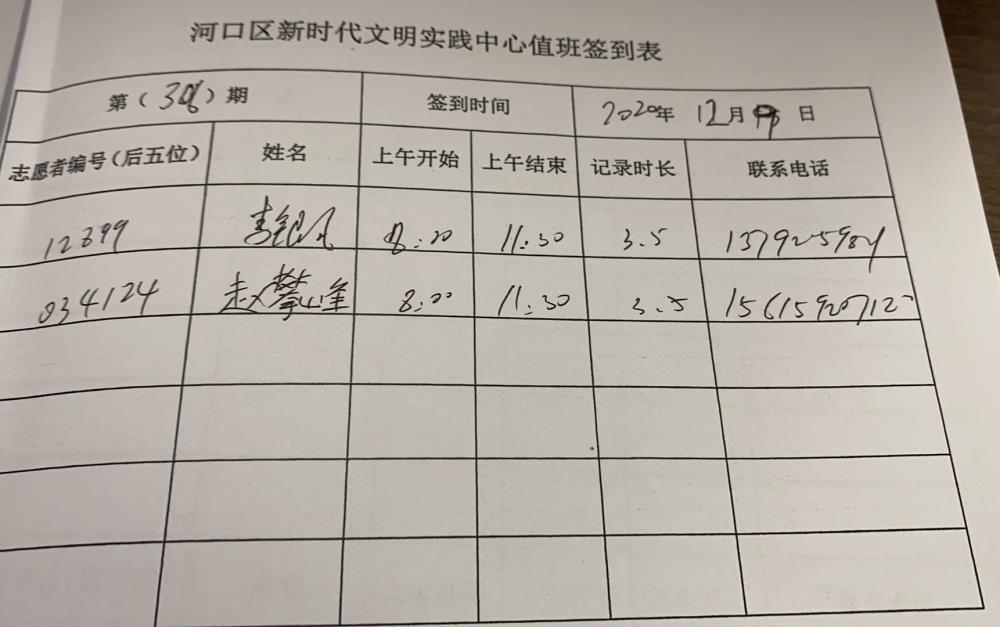 河口区新时代文明实践中心值班签到表
第（308）期 签到时间 2020年 12月 19 日
志愿者编号（后五位） 姓名 上午开始 上午结束 记录时长 联系电话
12399 李银凤 8:00 11:30 3.5
034124 赵攀峰 8:00 11:30 3.5